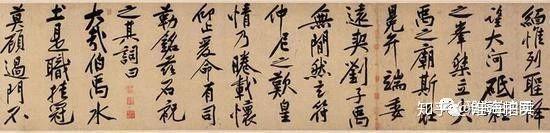 緬惟列聖降
望大河砥柱
之峯桀立
禹之廟斯
冕弁端委
遠契劉子禹
無間然主符
仲尼之歎皇
情乃睠載懷
仰止爰命有司
勒銘茲石祝
之其詞曰
大哉伯禹水
土是職挂冠
莫顧過門不
知乎